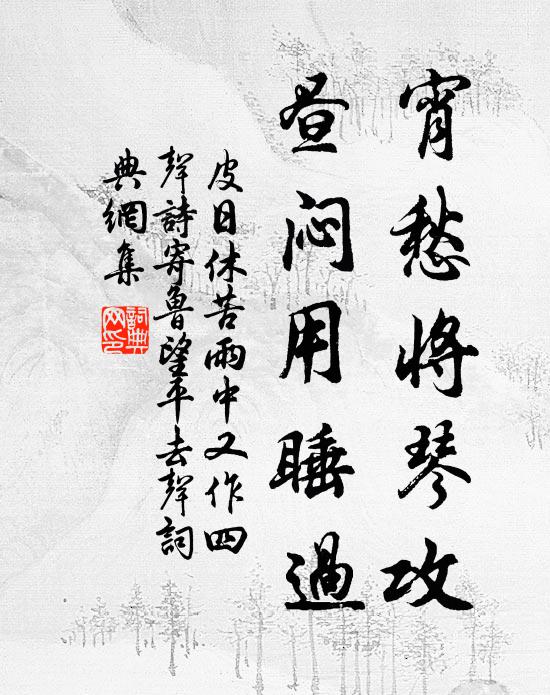 宵愁将琴攻
昼闷用睡過
皮日休苦雨中又作四
聲詩寄魯望平去聲詞
典網集
詞典
网印